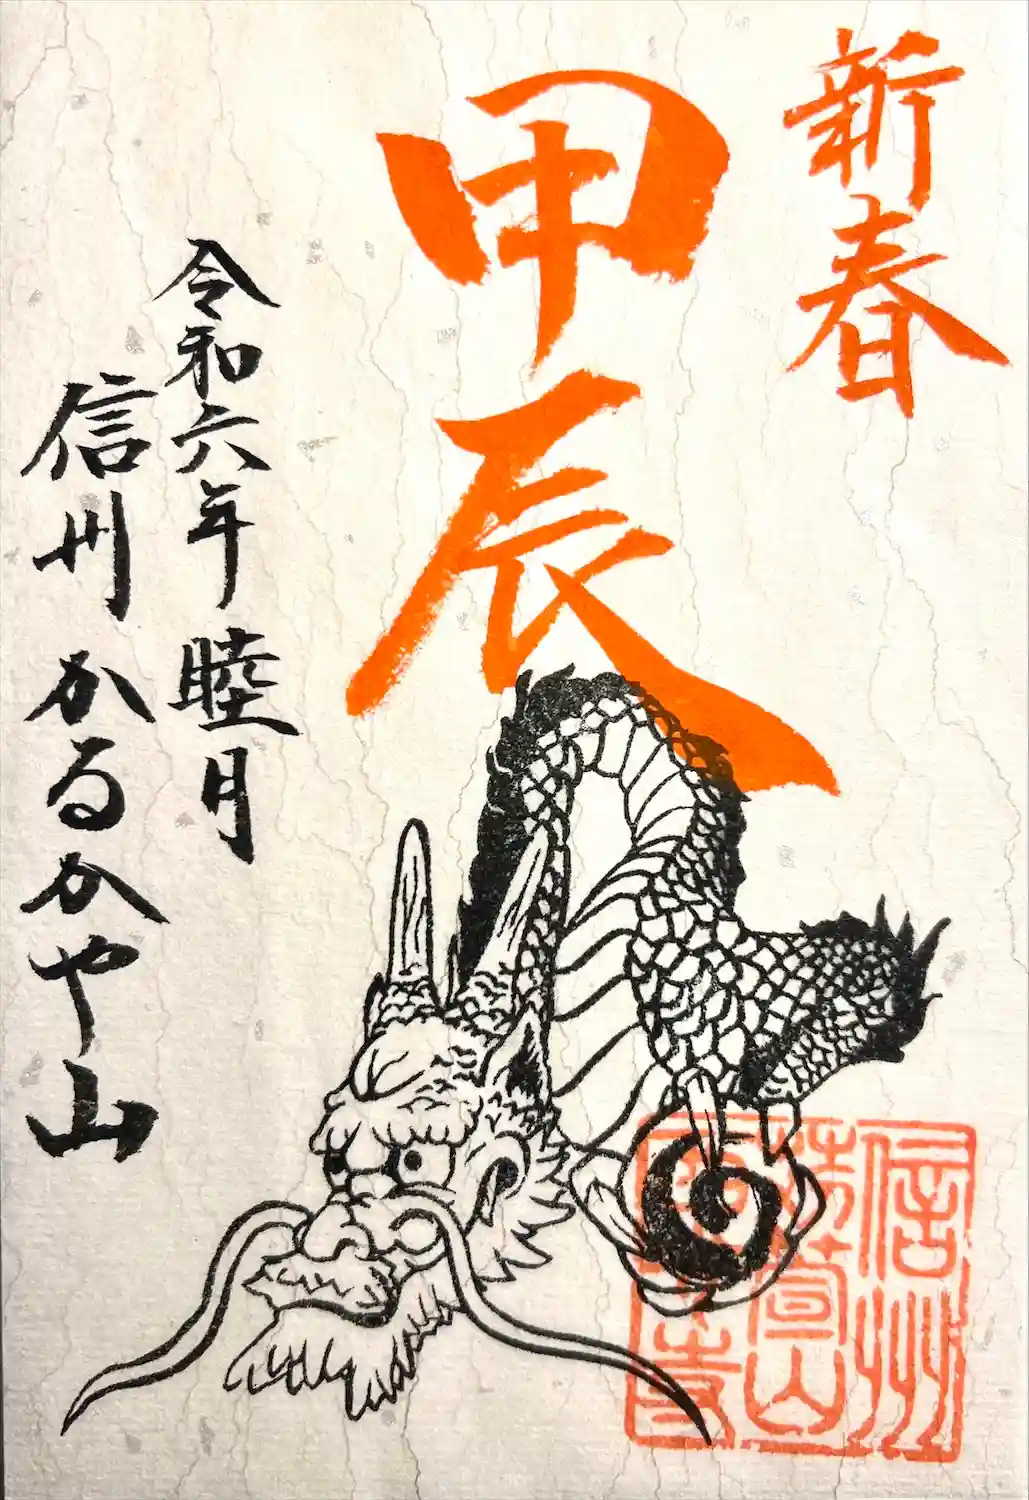 新春
甲辰
令和六年 睦月
信州 かるかや山
信州
苅萱山